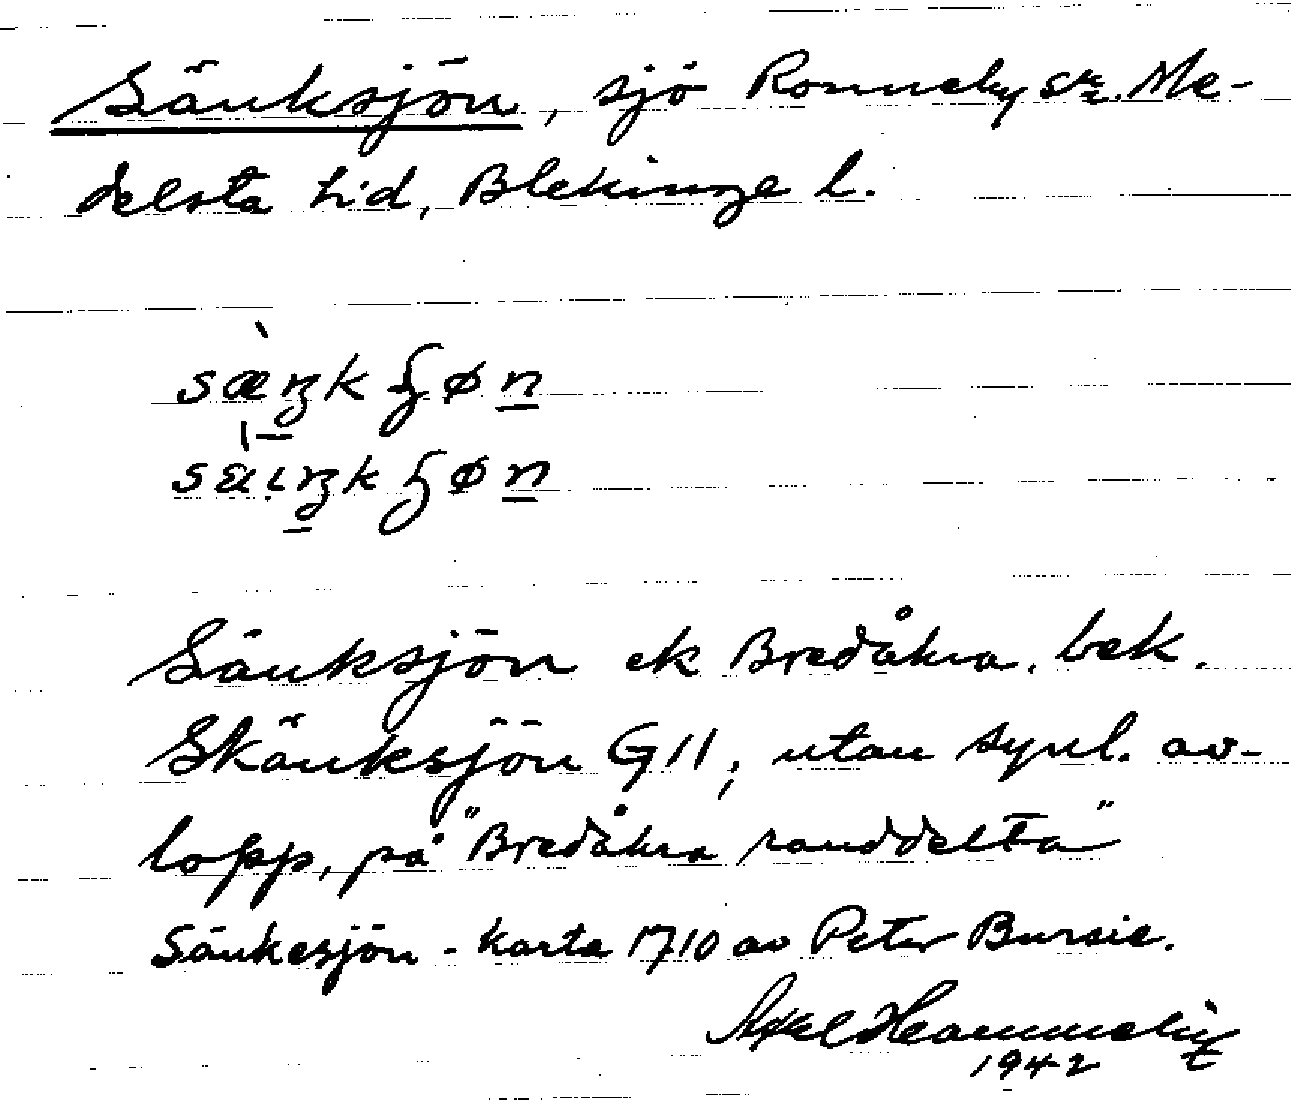 Sänksjön, sjö Ronneby sn. Me-
delsta hd, Blekinge l.
Sänksjön ek Bredåkra. bek.
Skänksjön G11, utan synl. av-
lopp, på "Bredåkra randdelta"
Sänkesjön - karta 1710 av Peter Bursie.
Axel
1942